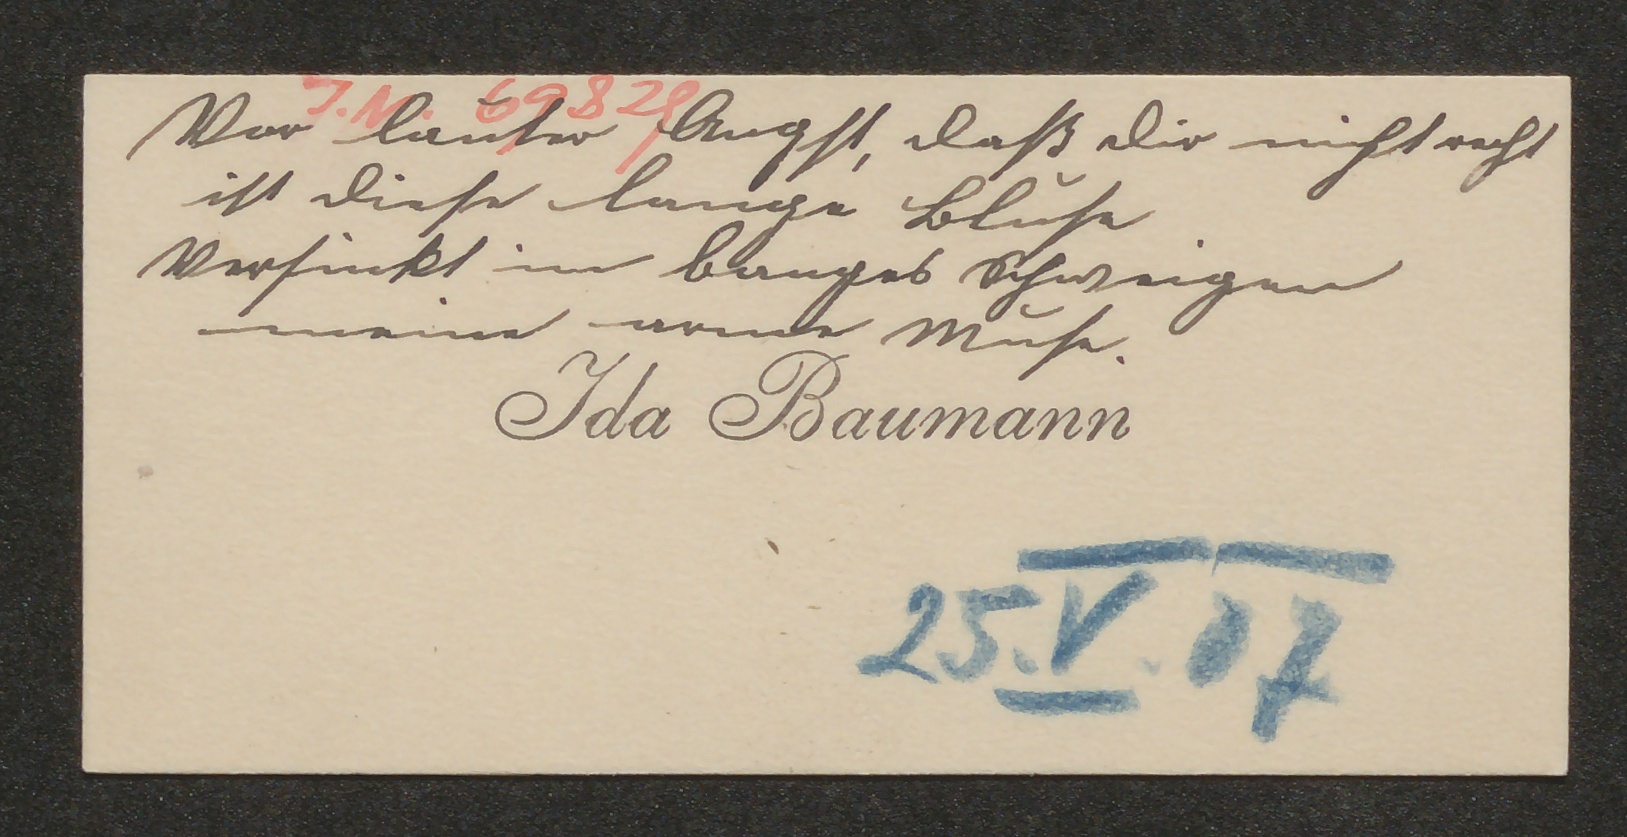 J.N. 69829
Vor lauter Angst, daß dir nicht recht
ist diese lange Bluse
Versinkt in banges Schweigen
meine arme Muse.
Ida Baumann
25.V.07